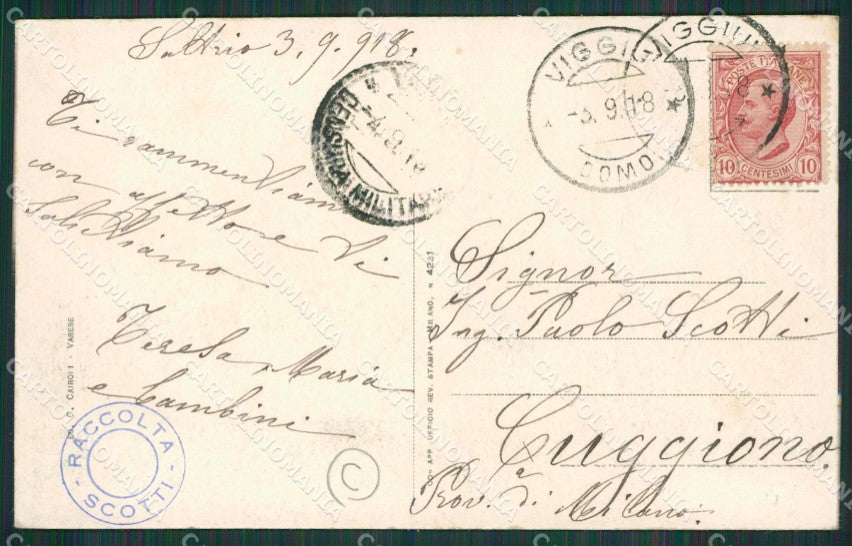 Saltrio 3.9.918.
Vi rammentiamo
con affetto e Vi
Salutiamo
Teresa, Maria
e bambini
VIGGIÙ
-3.9.18
COMO
VIGGIÙ
8
POSTE ITALIANE
10 CENTESIMI 10
CENSURA MILITARE
-4.9.18
Signor
Ing. Paolo Scotti
Cuggiono
Prov.ª di Milano.
CAIROLI - VARESE
CON APP. UFFICIO REV. STAMPA MILANO. N 4231
RACCOLTA
SCOTTI
C
CARTOLINOMANIA